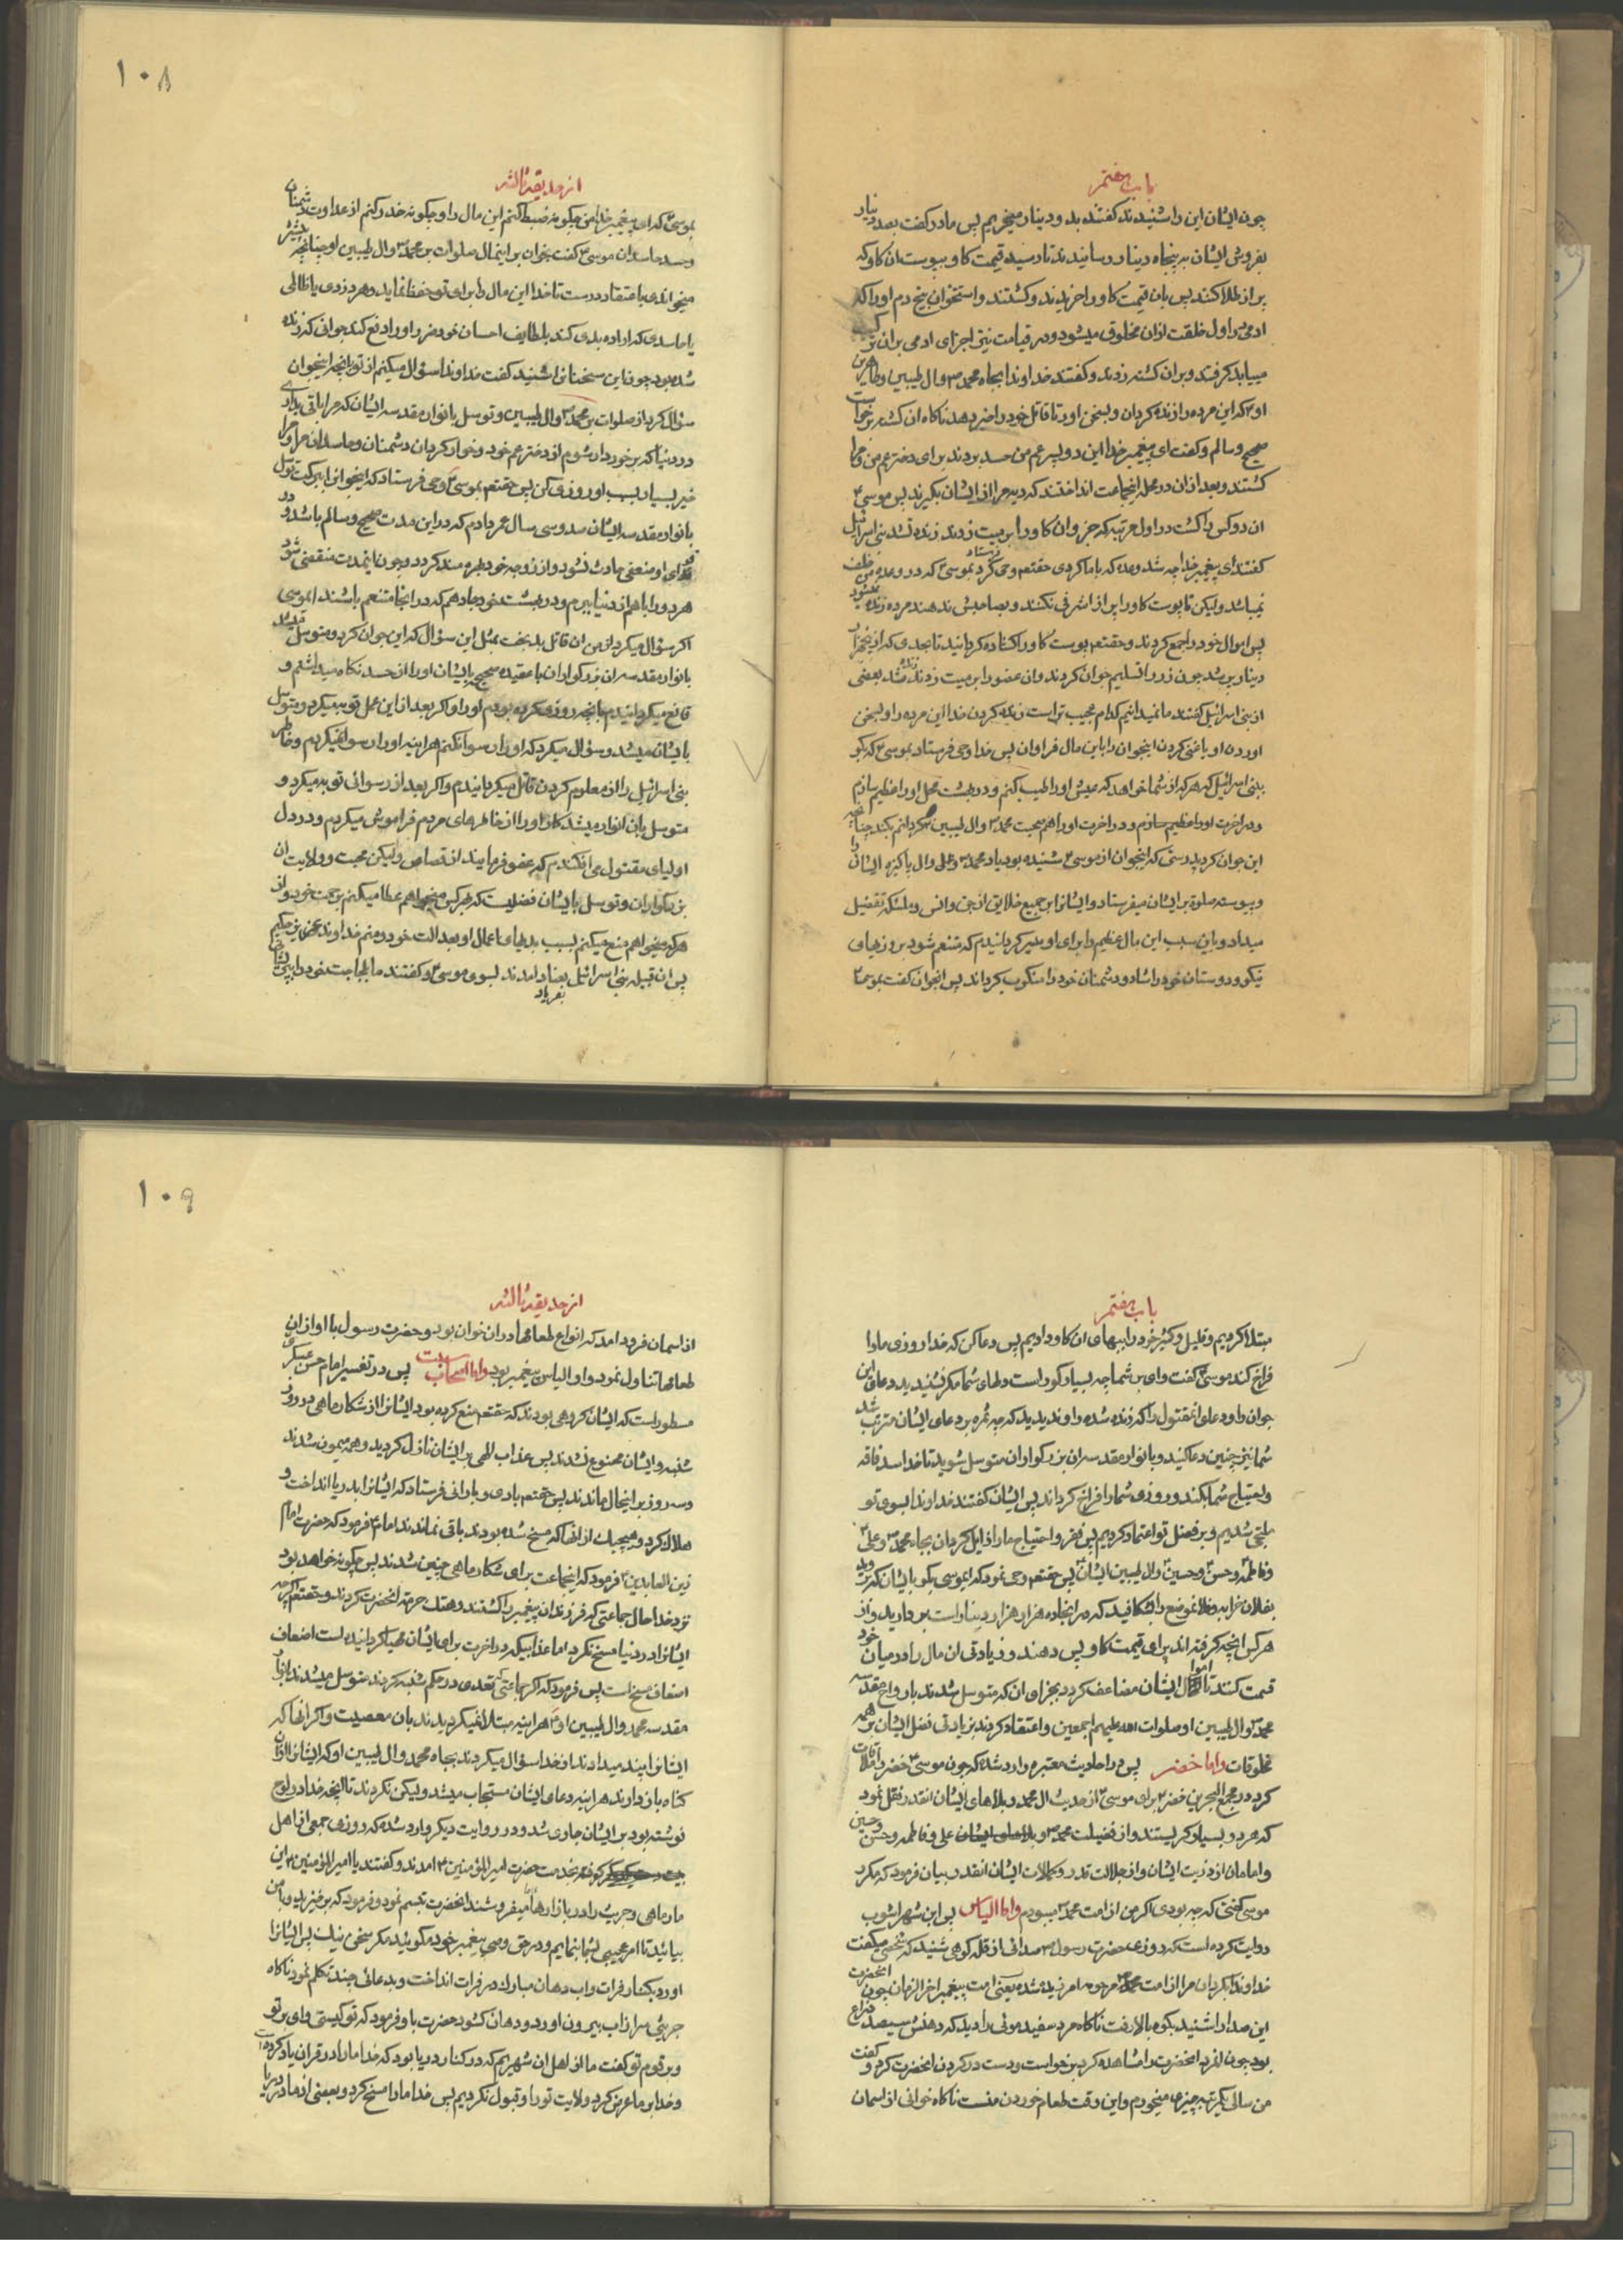 باب هفتم
چون ایشان این را شنیدند گفتند بدو دینار میخریم پس مادر گفت بصد دینار
بفروش ایشان به پنجاه دینار رسانیدند تا رسید قیمت کاو به پوست ان کاو که
پر از طلا کنند پس بان قیمت کاو را خریدند و کشتند و استخوان بیخ دم او را که
ادمی در اول خلقت ازان مخلوق میشود و در قیامت نیز اجزای ادمی بران ترکیب
مییابد کرفتند و بران کشته زدند و کفتند خداوندا بجاه محمد ص وال طیبین وطاهرین
او که این مرده را زنده کردان و بسخن اور تا قاتل خود را خبر دهد ناکاه ان کشته برخواست
صحیح و سالم و کفت ای پیغمبر خدا این دو پسر عم من حسد بردند برای دختر عم من و مرا
کشتند و بعد ازان در محله اینجماعت انداختند که دیه مرا از ایشان بکیرند پس موسی ع
ان دو کس را کشت در اول مرتبه که جزو ان کاو را بر میت زدند زنده نشد بنی اسرائیل
کفتند ای پیغمبر خدا چه شد وعده که با ما کردی حقتعم وحی کرد بموسی ع که در وعده من خلف
نمیباشد ولیکن تا پوست کاو را پر از اشرفی نکنند و بصاحبش ندهند مرده زنده نمیشود
پس اموال خود را جمع کردند و حقتعم پوست کاو را کشاده کردانید تا بحدی که از پنجهزار
دینار پر شد چون زر را تسلیم جوان کردند وان عضو را بر میت زدند زنده شد بعضی
از بنی اسرائیل کفتند ما نمیدانیم کدام عجیب تر است زنده کردن خدا این مرده را و بسخن
اوردن او یا غنی کردن اینجوان را باین مال فراوان پس خدا وحی فرستاد بموسی ع که بکو
ببنی اسرائیل که هر که از شما خواهد که عیش او را طیب کنم و در بهشت محل او را عظیم سازم
و در اخرت او را عظیم سازم و در اخرت او را هم صحبت محمد ص وال طیبین کردانم بکند چنانچه
این جوان کرد بدرستی که اینجوان از موسی ع شنیده بود یاد محمد ص و علی وال پاکیزه ایشان را
و پیوسته صلوة بر ایشان میفرستاد و ایشانرا بر جمیع خلایق از جن وانس و ملئکه تفضیل
میداد و باین سبب این مال عظیم را برای او میسر کردانیدم که متنعم شود بروزیهای
نیکو و دوستان خود را شاد و دشمنان خود را منکوب کرداند پس انجوان کفت بموسی ع
۱۰۸
از حدیقه ثالثه
بموسی ع که ای پیغمبر خدا من چکونه ضبط کنم این مال را و چکونه حذر کنم از عداوت دشمنان
وحسد حاسدان موسی ع کفت بخوان بر اینمال صلوات بر محمد ص وال طیبین او چنانچه پیشتر
میخواندی با اعتقاد درست تا خدا این مال را برای تو حفظ نماید و هر دزدی یا ظالمی
یا حاسدی که اراده بدی کند بلطایف احسان خود ضرر او را دفع کند جوانی که زنده
شده بود چون این سخنانرا شنید کفت خداوندا سؤال میکنم از تو بانچه اینجوان
سؤال کرد از صلوات بر محمد ص وال طیبین و توسل بانوار مقدسه ایشان که مرا باقی بداری
در دنیا که برخوردار شوم از دختر عم خود و خوار کردان دشمنان و حاسدان مرا و مرا
خیر بسیار بسبب او روزی کن پس حقتعم بموسی ع وحی فرستاد که اینجوانرا ببرکت توسل
بانوار مقدسه ایشان صد و سی سال عمر دادم که در این مدت صحیح و سالم باشد و در
قوای او ضعفی حادث نشود و از زوجه خود بهره مند کردد و چون اینمدت منقضی شود
هر دو را باهم از دنیا ببرم و در بهشت خود جا دهم که در انجا متنعم باشند ای موسی
اکر سؤال میکرد از من ان قاتل بدبخت بمثل این سؤال که این جوان کرد و متوسل میشد
بانوار مقدسه ان بزرکواران با عقیده صحیح بایشان او را از حسد نکاه میداشتم و
قانع میکردانیدم بانچه روزی کرده بودم او را و اکر بعد از این عمل توبه میکرد و متوسل
بایشان میشد و سؤال میکرد که او را رسوا نکنم هراینه او را رسوا نمیکردم و خاطر
بنی اسرائیل را از معلوم کردن قاتل میکردانیدم و اکر بعد از رسوائی توبه میکرد و
متوسل بان انوار میشد کار او را از خاطرهای مردم فراموش میکردم و در دل
اولیای مقتول می افکندم که عفو فرمایند از قصاص ولیکن محبت و ولایت ان
بزرکواران و توسل بایشان فضلیست که بهر کس میخواهم عطا میکنم برحمت خود و از
هر که میخواهم منع میکنم بسبب بدیهای اعمال او بعدالت خود و منم خداوند عزیز حکیم
پس ان قبیله بنی اسرائیل بفریاد امدند بسوی موسی ع و کفتند ما بلجاجت خود را بپریشانی
باب هفتم
مبتلا کردیم و قلیل و کثیر خود را ببهای ان کاو دادیم پس دعا کن که خدا روزی ما را
فراخ کند موسی ع کفت وای بر شما چه بسیار کور است دلهای شما مکر نشنیدید دعای این
جوان را و دعای انمقتول را که زنده شد و دیدید که چه ثمره بر دعای ایشان مترتب شد
شما نیز چنین دعا کنید و بانوار مقدسه ان بزرکواران متوسل شوید تا خدا سد فاقه
و احتیاج شما بکند و روزی شما را فراخ کرداند پس ایشان کفتند خداوندا بسوی تو
ملتجی شدیم و بر فضل تو اعتماد کردیم پس فقر و احتیاج ما را زایل کردان بجاه محمد ص و علی ع
و فاطمه و حسن و حسین وال طیبین ایشان پس حقتعم وحی نمود که ای موسی بکو بایشان که بروید
بفلان خرابه و فلان موضع را بشکافید که در انجا ده هزار هزار دینار است بردارید و از
هر کس انچه کرفته اند برای قیمت کاو پس دهند و زیادتی ان مال را در میان خود
قسمت کنند تا اموال ایشان مضاعف کردد بجزای ان که متوسل شدند بارواح مقدسه
محمد وال طیبین او صلوات الله علیهم اجمعین و اعتقاد کردند بزیادتی فضل ایشان بر همه
مخلوقات واما خضر پس در احادیث معتبره وارد شده که چون موسی ع خضر را ملاقات
کرد در مجمع البحرین خضر ع برای موسی ع از حدیث ال محمد و بلاهای ایشان انقدر نقل نمود
که هر دو بسیار کریستند و از فضیلت محمد ص و علی و فاطمه و حسن و حسین
و امامان از ذریت ایشان و از جلالت قدر و کمالات ایشان انقدر بیان فرمود که مکرر
موسی کفتی که چه بودی اکر من از امت محمد ص میبودم واما الیاس پس ابن شهراشوب
روایت کرده است که روزی حضرت رسول ص صدائی از قله کوهی شنید که شخصی میکفت
خداوندا بکردان مرا از امت مرحومه امرزیده شده یعنی امت پیغمبر اخر الزمان چون انحضرت
این صدا را شنید بکوه بالا رفت ناکاه مرد سفید موئی را دید که قدش سیصد ذراع
بود چون انمرد انحضرت را مشاهده کرد برخواست و دست در کردن انحضرت کرد و کفت
من سالی یکمرتبه چیزی میخورم و این وقت طعام خوردن منست ناکاه خوانی از اسمان
۱۰۹
از حدیقه ثالثه
از اسمان فرود امد که انواع طعامها دران خوان بود و حضرت رسول با او ازان
طعامها تناول نمود و او الیاس پیغمبر بود واما اصحاب سبت پس در تفسیر امام حسن عسکری
مسطور است که ایشان کروهی بودند که حقتعم منع کرده بود ایشانرا از شکار ماهی در روز
شنبه و ایشان ممنوع نشدند پس عذاب الهی بر ایشان نازل کردید و همه میمون شدند
و سه روز بر اینحال ماندند پس حقتعم بادی و بارانی فرستاد که ایشانرا بدریا انداخت و
هلاک کرد و هیچیک از انها که مسخ شده بودند باقی نماندند امام ع فرمود که حضرت امام
زین العابدین ع فرمود که اینجماعت برای شکار ماهی چنین شدند پس چکونه خواهد بود
نزد خدا حال جماعتی که فرزندان پیغمبر را کشتند و هتک حرمت انحضرت کردند و حقتعم اکرچه
ایشانرا در دنیا مسخ نکرد اما عذابیکه در اخرت برای ایشان مهیا کردانیده است اضعاف
اضعاف مسخ است پس فرمود که اکر جماعتی که تعدی در حکم شنبه کردند متوسل میشدند بانوار
مقدسه محمد وال طیبین او هراینه مبتلا نمیکردیدند بان معصیت و اکر انها که
ایشانرا پند میدادند از خدا سؤال میکردند بجاه محمد وال طیبین او که ایشانرا ازان
کناه باز دارند هراینه دعای ایشان مستجاب میشد ولیکن نکردند تا انچه خدا در لوح
نوشته بود بر ایشان جاری شد و در روایت دیکر وارد شده که روزی جمعی از اهل
کوفه بخدمت حضرت امیر المؤمنین ع امدند و کفتند یا امیر المؤمنین ع این
مارماهی و جریث را در بازارها میفروشند انحضرت تبسم نمود و فرمود که برخیزید و با من
بیائید تا امر عجیبی بشما بنمایم و در حق وصی پیغمبر خود مکوئید مکر سخن نیک پس ایشانرا
اورد بکنار فرات و اب دهان مبارک در فرات انداخت و بدعائی چند تکلم نمود ناکاه
جریثی سر از اب بیرون اورد و دهان کشود حضرت باو فرمود که تو کیستی وای بر تو
و بر قوم تو کفت ما از اهل ان شهریم که در کنار دریا بود که خدا ما را در قران یاد کرده است
و خدا بر ما عرض کرد ولایت تو را و قبول نکردیم پس خدا ما را مسخ کرد و بعضی از ما در دریا